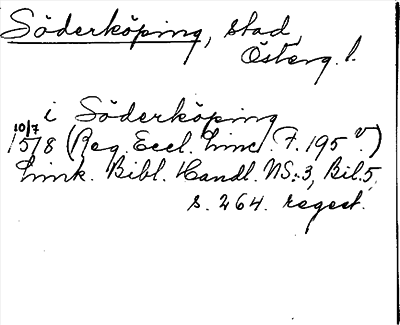 Söderköping, stad,
Österg. l.
i Söderköping
10/7
1578 (Reg. Eccl. Linc. F. 195 v.)
Link. Bibl. Handl. NS:3, Bil. 5,
s. 264. regest.